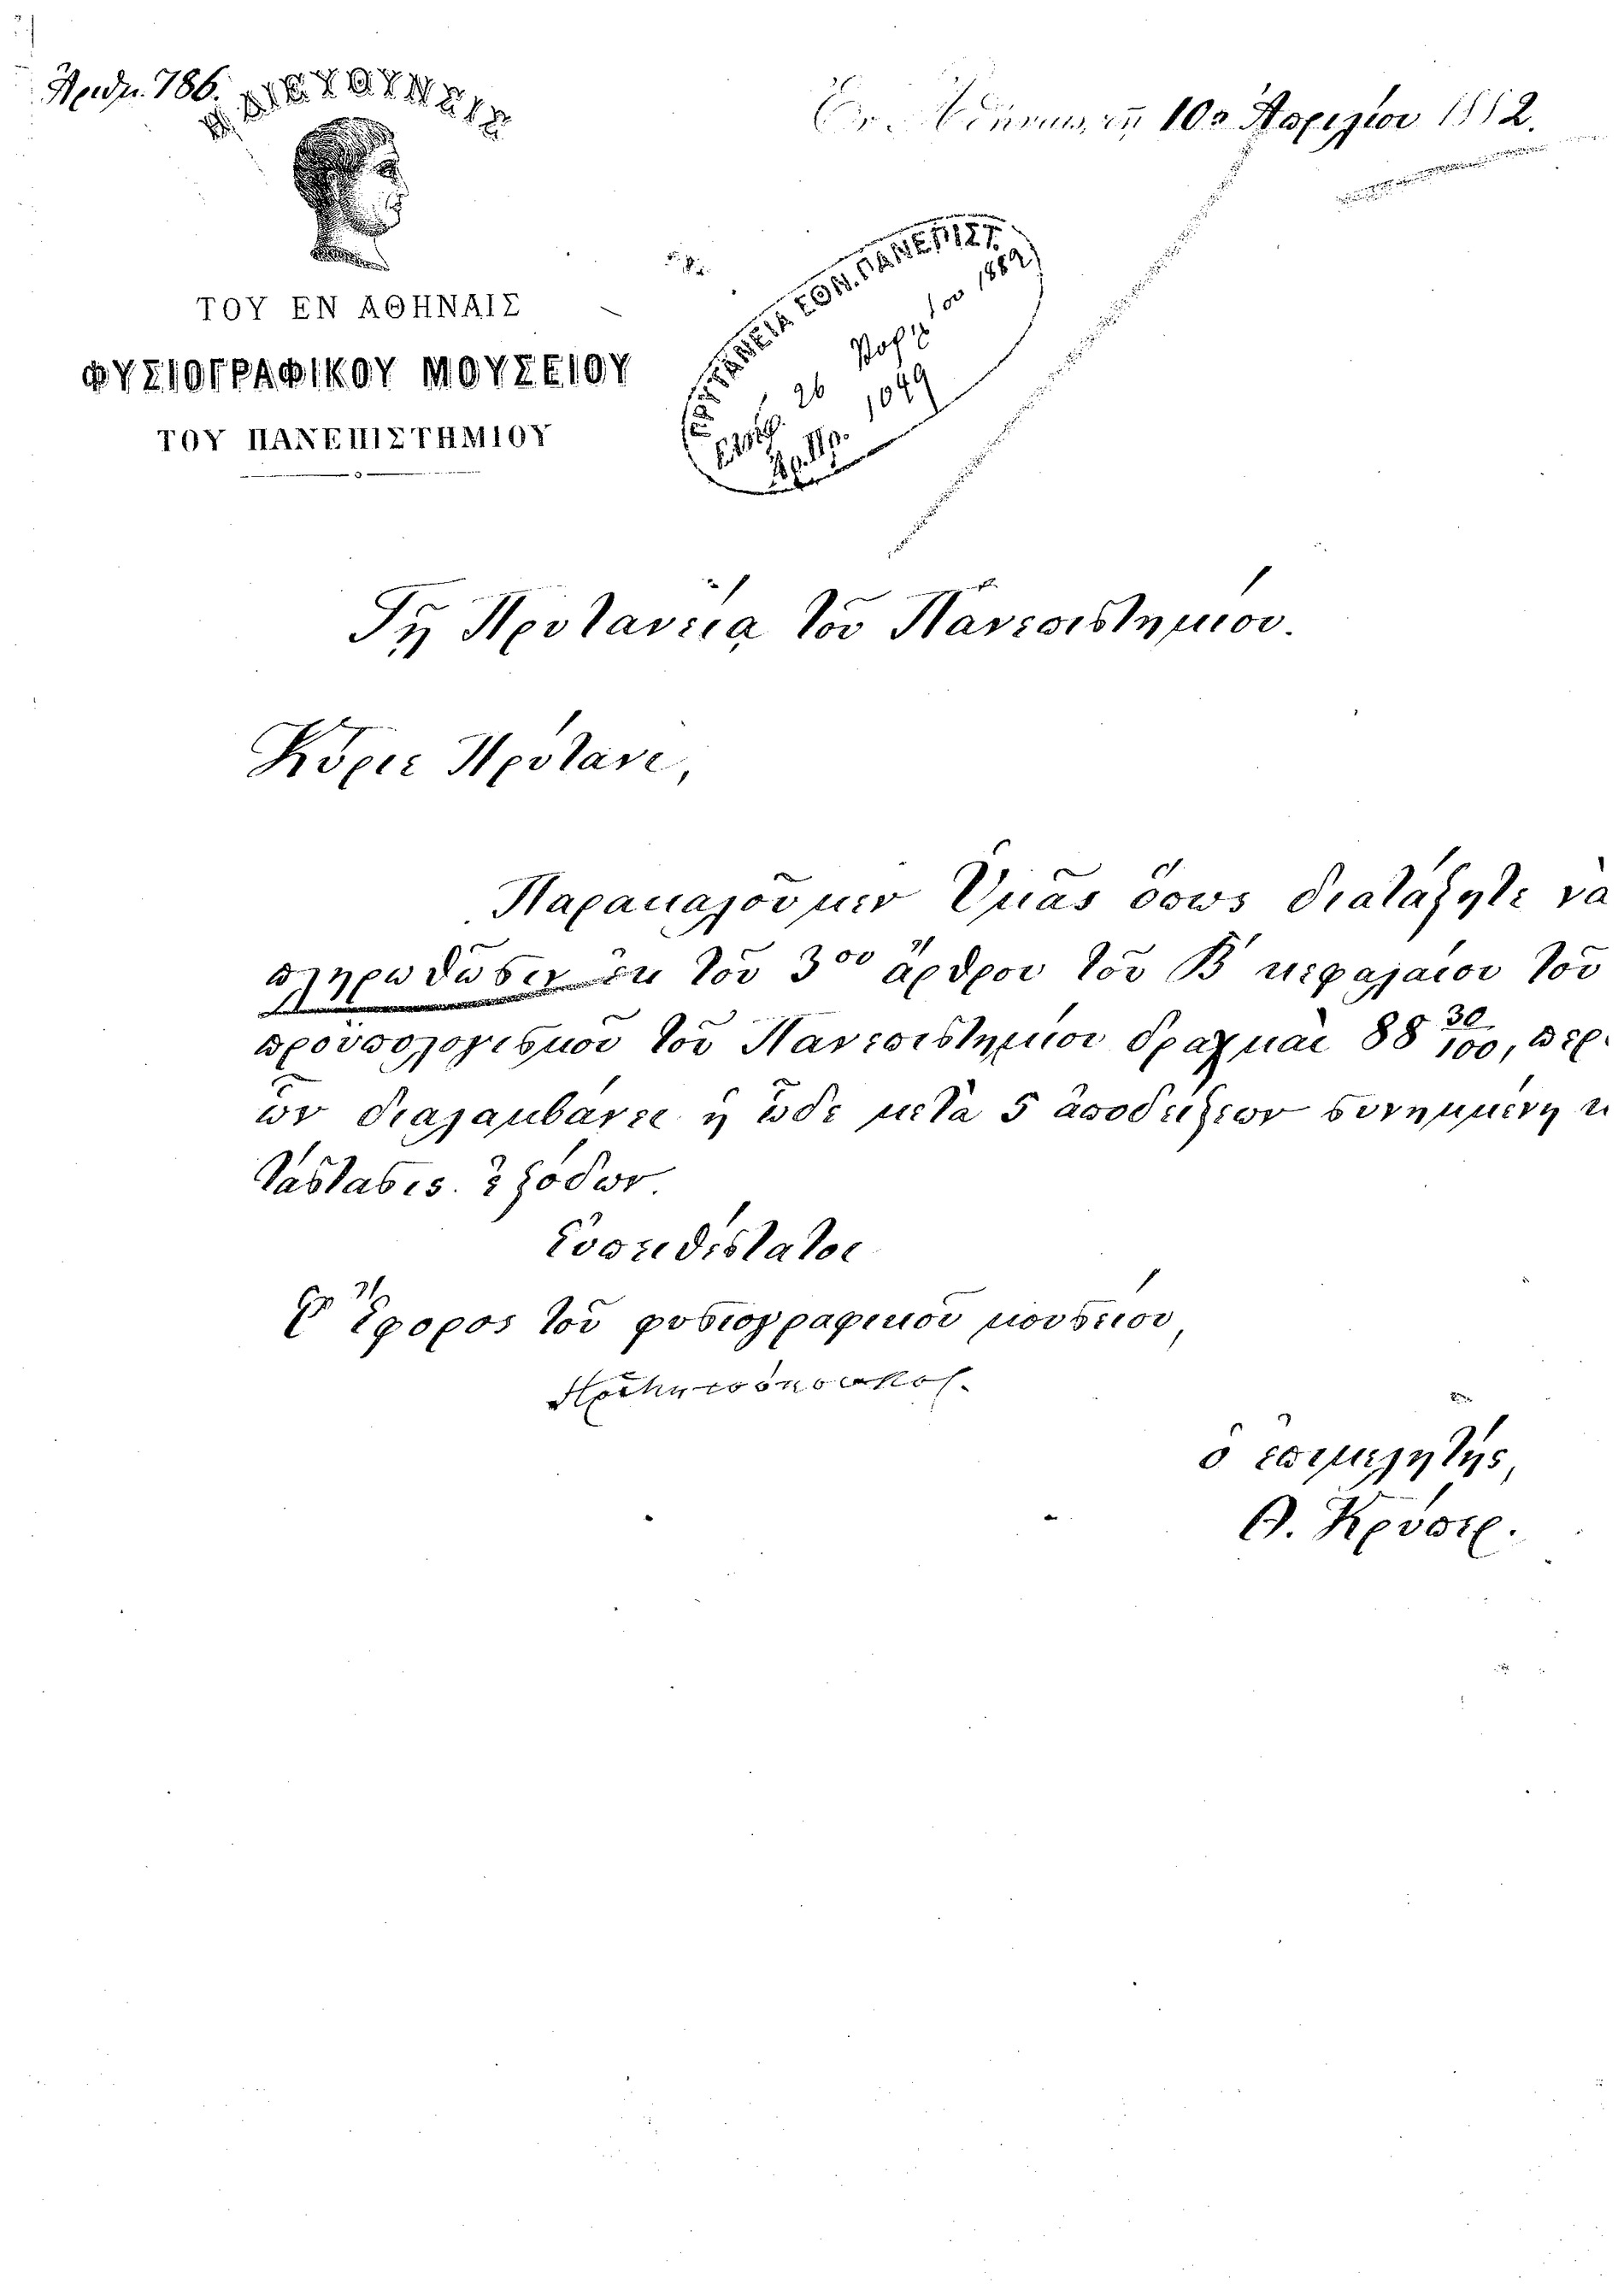 Ἀριθμ. 786.
Η ΔΙΕΥΘΥΝΣΙΣ
Ἐν Ἀθήναις, τῇ 10ῃ Ἀπριλίου 1882.
ΤΟΥ ΕΝ ΑΘΗΝΑΙΣ
ΦΥΣΙΟΓΡΑΦΙΚΟΥ ΜΟΥΣΕΙΟΥ
ΤΟΥ ΠΑΝΕΠΙΣΤΗΜΙΟΥ
ΠΡΥΤΑΝΕΙΑ ΕΘΝ. ΠΑΝΕΠΙΣΤ.
26 1882
Ἀρ. Πρ. 1049
Τῇ Πρυτανείᾳ τοῦ Πανεπιστημίου.
Κύριε Πρύτανι,
Παρακαλοῦμεν Ὑμᾶς ὅπως διατάξητε νὰ
πληρωθῶσιν ἐκ τοῦ 3ου ἄρθρου τοῦ Β κεφαλαίου τοῦ
προϋπολογισμοῦ τοῦ Πανεπιστημίου δραχμαὶ 88 30/100, περὶ
ὧν διαλαμβάνει ἡ ὧδε μετὰ 5 ἀποδείξεων συνημμένη κα
τάστασις ἐξόδων.
Εὐπειθέστατοι
Ὁ Ἔφορος τοῦ φυσιογραφικοῦ μουσείου,
ὁ ἐπιμελητής,
Θ. Κρύπερ.